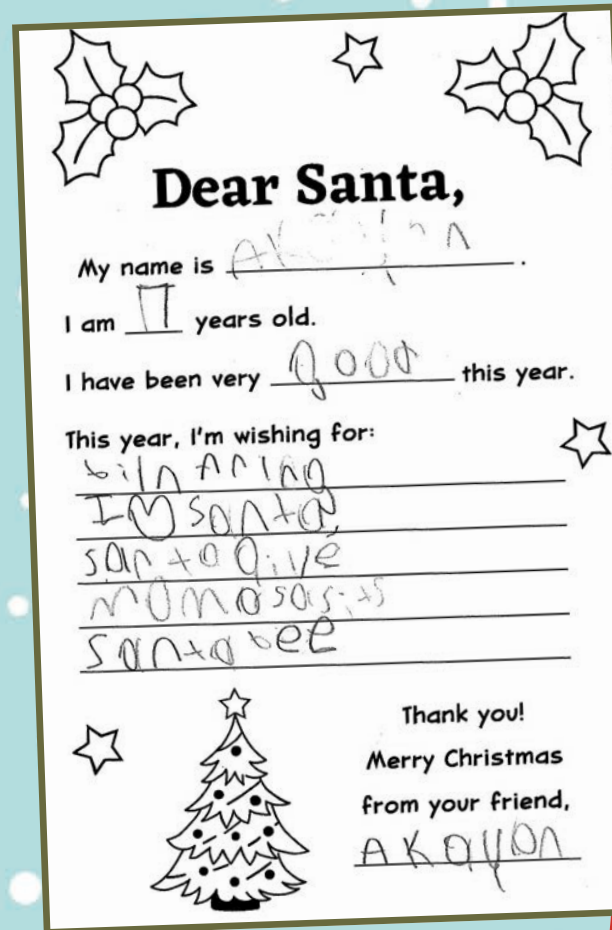 Dear Santa,
My name is AKayon.
I am 7 years old.
I have been very good this year.
This year, I'm wishing for:
I ♡ santa,
santa give
mom a
santa bee
Thank you!
Merry Christmas
from your friend,
AKayon